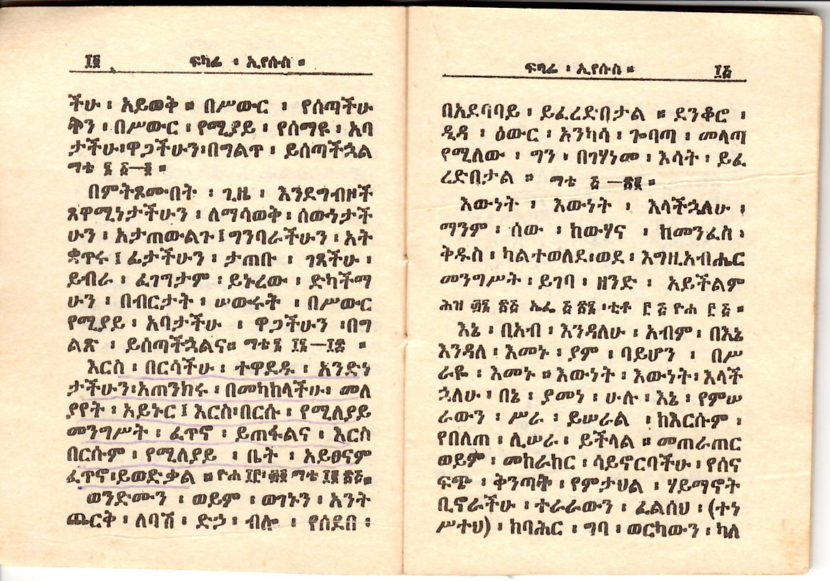 ፲፬ ፍካሬ ፡ ኢየሱስ ።
ችሁ ፡ አይወቅ ። በሥውር ፡ የሰጣችሁ
ቅን ፡ በሥውር ፡ የሚያይ ፡ የሰማዩ ፡ አባ
ታችሁ፡ዋጋችሁን፡በግልጥ ፡ ይሰጣችኋል
ማቴ ፮ ፩—፬ ።
በምትጾሙበት ፡ ጊዜ ፡ እንደግብዞች
ጸዋሚነታችሁን ፡ ለማሳወቅ ፡ ሰውነታች
ሁን ፡ አታጠውልጉ ፤ ግንባራችሁን ፡ አት
ቋጥሩ ፤ ፊታችሁን ፡ ታጠቡ ፡ ገጻችሁ ፡
ይብራ ፡ ፈገግታም ፡ ይኑረው ፡ ድካችማ
ሁን ፡ በብርታት ፡ ሠውሩት ፡ በሥውር
የሚያይ ፡ አባታችሁ ፡ ዋጋችሁን ፡በግ
ልጽ ፡ ይሰጣችኋልና። ማቴ ፮ ፲፮—፲፰ ።
እርስ ፡ በርሳችሁ ፡ ተዋደዱ ፡ አንድነ
ታችሁን፡አጠንክሩ ፡ በመካከላችሁ፡ መለ
ያየት ፡ አይኑር ፤ እርስ፡በርሱ ፡ የሚለያይ
መንግሥት ፡ ፈጥኖ ፡ ይጠፋልና ፡ እርስ
በርሱም ፡ የሚለያይ ፡ ቤት ፡ አይፀናም
ፈጥኖ፡ይወድቃል ። ዮሐ ማቴ ፲፪ ፳፭ ።
ወንድሙን ፡ ወይም ፡ ወገኑን ፡ አንት
ጨርቅ ፡ ለባሽ ፡ ድኃ ፡ ብሎ ፡ የሰደበ ፡
ፍካሬ ፡ ኢየሱስ ። ፲፭
በአደባባይ ፡ ይፈረድበታል ። ደንቆሮ ፡
ዲዳ ፡ ዕውር ፡ አንካሳ ፡ ጐባጣ ፡ መላጣ
የሚለው ፡ ግን ፡ በገሃነመ ፡ እሳት ፡ ይፈ
ረድበታል ። ማቴ ፭ —፳፪ ።
እውነት ፡ እውነት ፡ እላችኋለሁ ፡
ማንም ፡ ሰው ፡ ከውሃና ፡ ከመንፈስ ፡
ቅዱስ ፡ ካልተወለደ፡ወደ ፡ እግዚአብሔር
መንግሥት ፡ ይገባ ፡ ዘንድ ፡ አይችልም
ሕዝ ፴፮ ፳፭ ኤፌ ፭ ፳፮ ፡ቲቶ ፫ ፭ ዮሐ ፫ ፭ ።
እኔ ፡ በአብ ፡ እንዳለሁ ፡ አብም ፡ በእኔ
እንዳለ ፡ እመኑ ፡ ያም ፡ ባይሆን ፡ በሥ
ራዬ ፡ እመኑ ። እውነት ፡ እውነት፡ እላች
ኋለሁ ፡ በኔ ፡ ያመነ ፡ ሁሉ ፡ እኔ ፡ የምሠ
ራውን ፡ ሥራ ፡ ይሠራል ፡ ከእርሱም ፡
የበለጠ ፡ ሊሠራ ፡ ይችላል ። መጠራጠር
ወይም ፡ መከራከር ፡ ሳይኖርባችሁ ፡ የሰና
ፍጭ ፡ ቅንጣት ፡ የምታህል ፡ ሃይማኖት
ቢኖራችሁ ፡ ተራራውን ፡ ፈልሰህ ፡ (ተነ
ሥተህ) ፡ ከባሕር ፡ ግባ ፡ ወርካውን ፡ ካለ